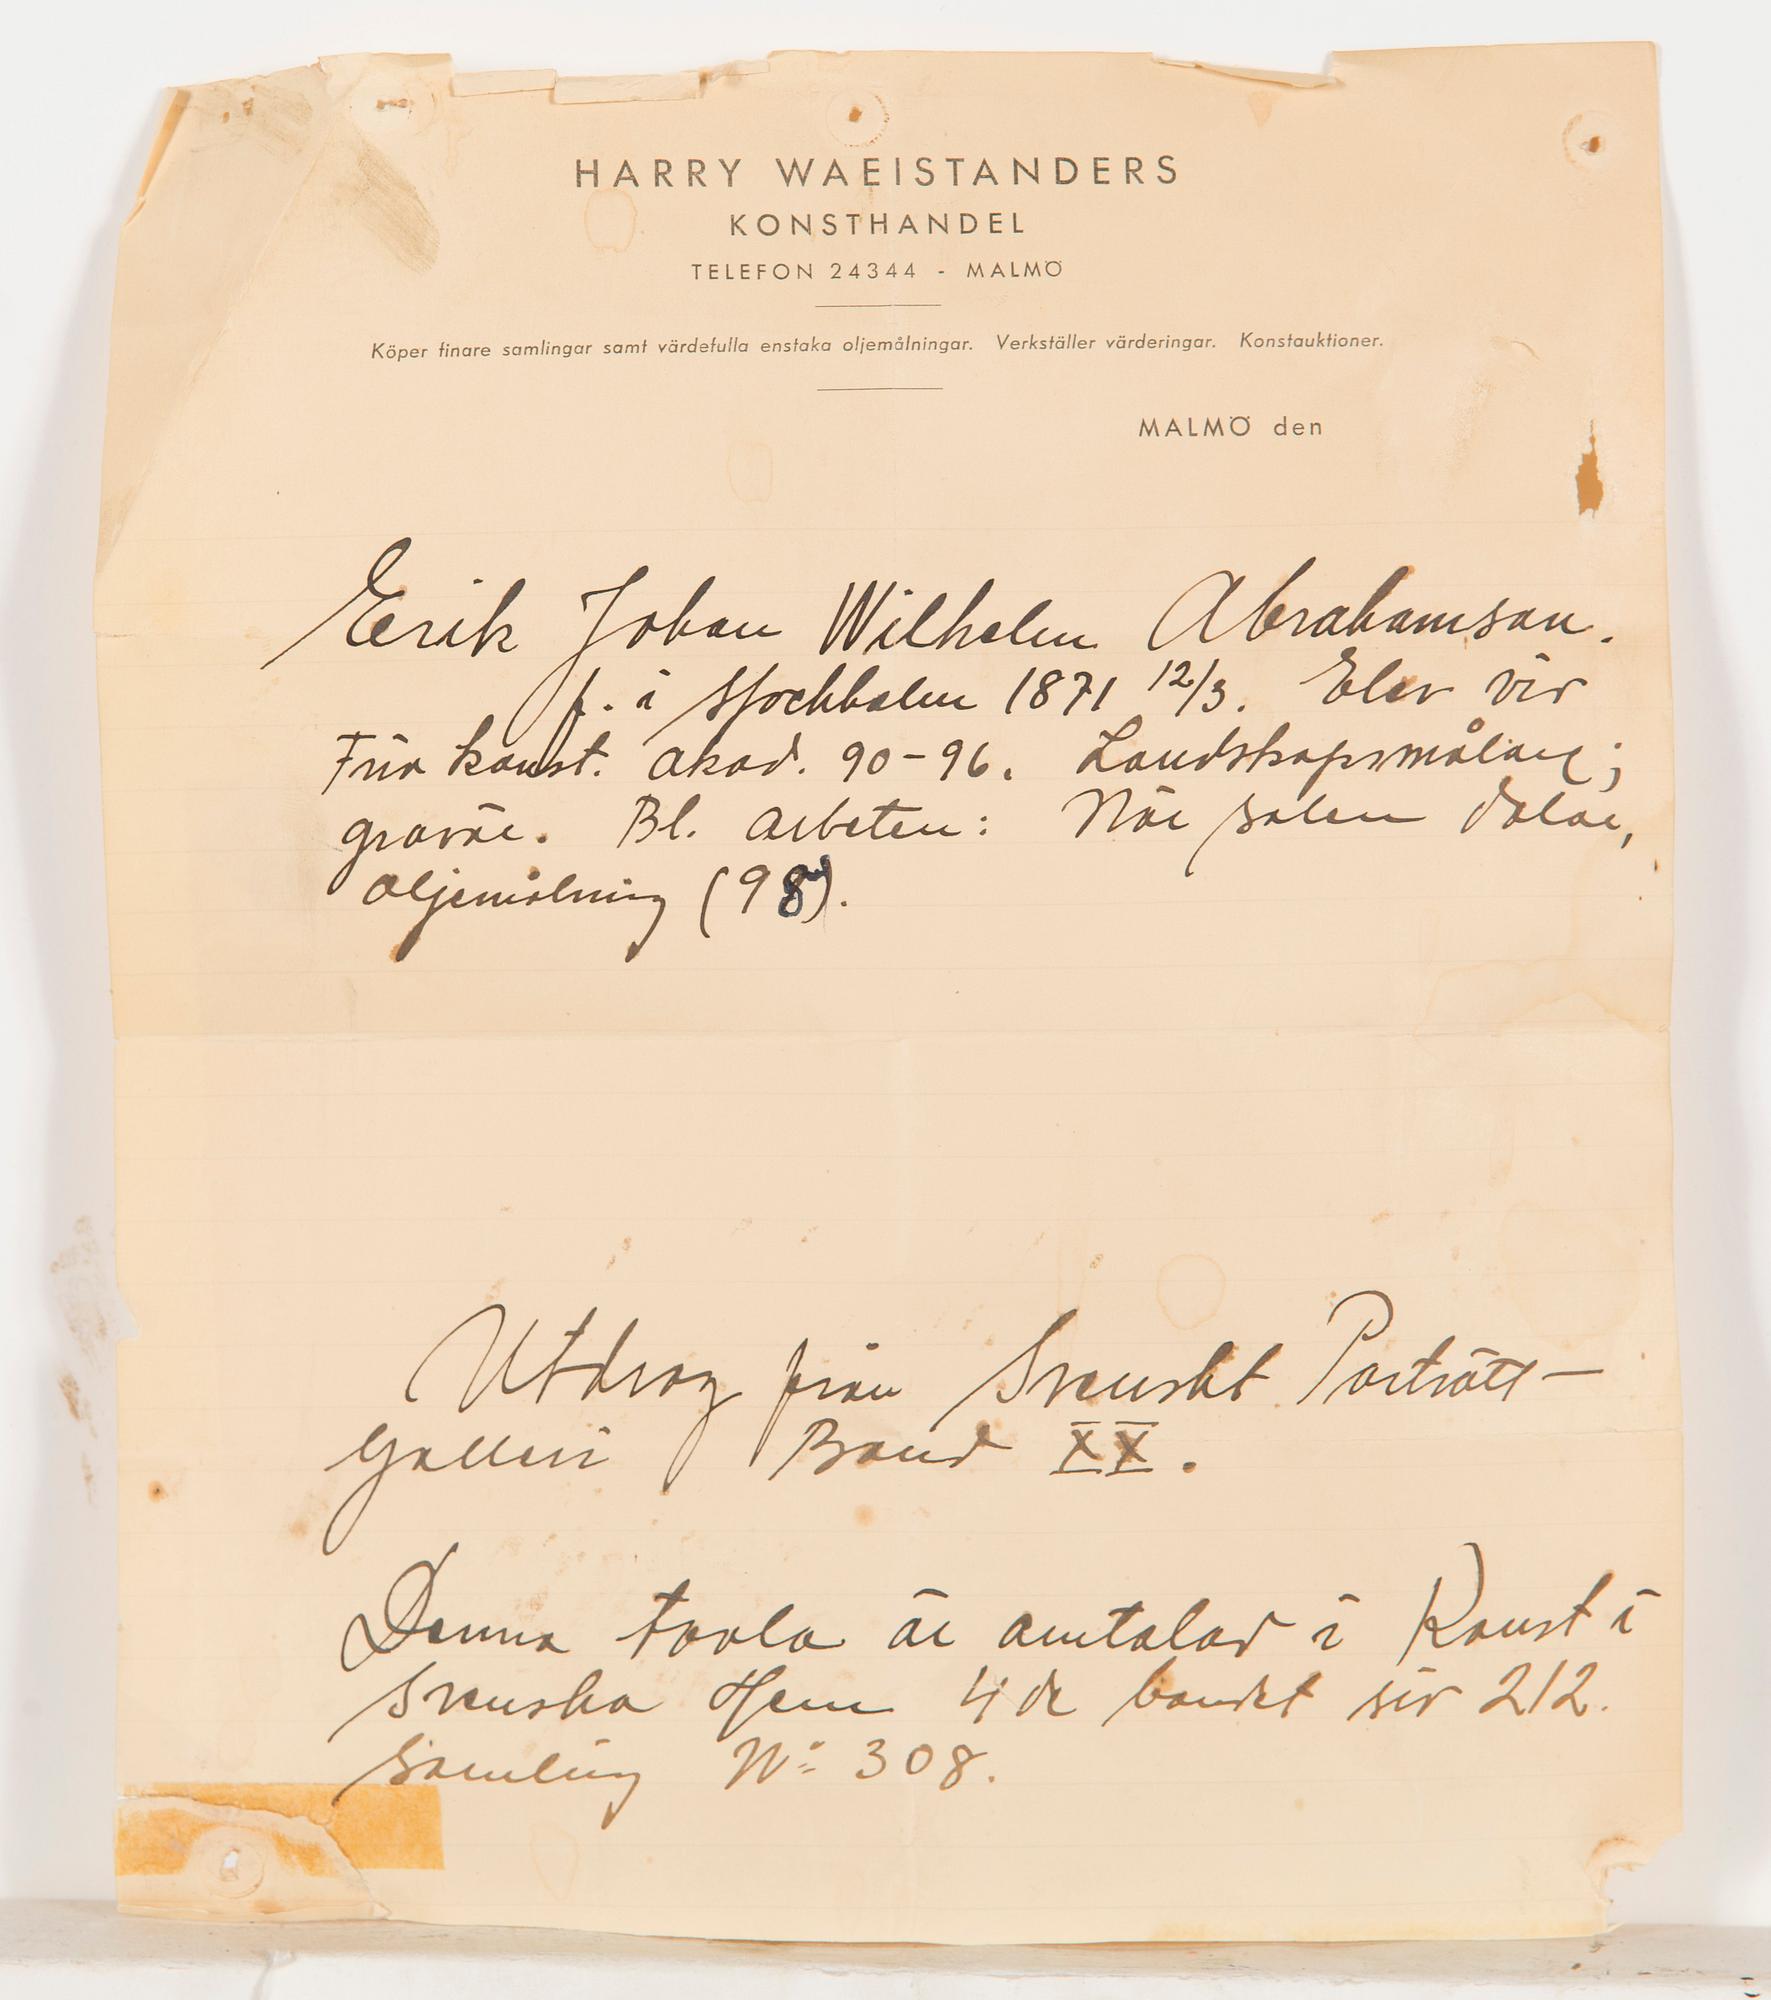 HARRY WAEISTANDERS
KONSTHANDEL
TELEFON 24344 - MALMÖ
Köper finare samlingar samt värdefulla enstaka oljemålningar. Verkställer värderingar. Konstauktioner.
MALMÖ den
Erik Johan Wilhelm Abrahamson.
f. i Stockholm 1871 12/3. Elev vid
Fria konst. akad. 90-96. Landskapsmålare;
gravör. Bl. arbeten: När solen dalar,
oljemålning (98).
Utdrag från Svenskt Porträtt-
galleri Band XX.
Denna tavla är omtalad i Konst i
Svenska Hem 4de bandet sid 212.
Samling No 308.